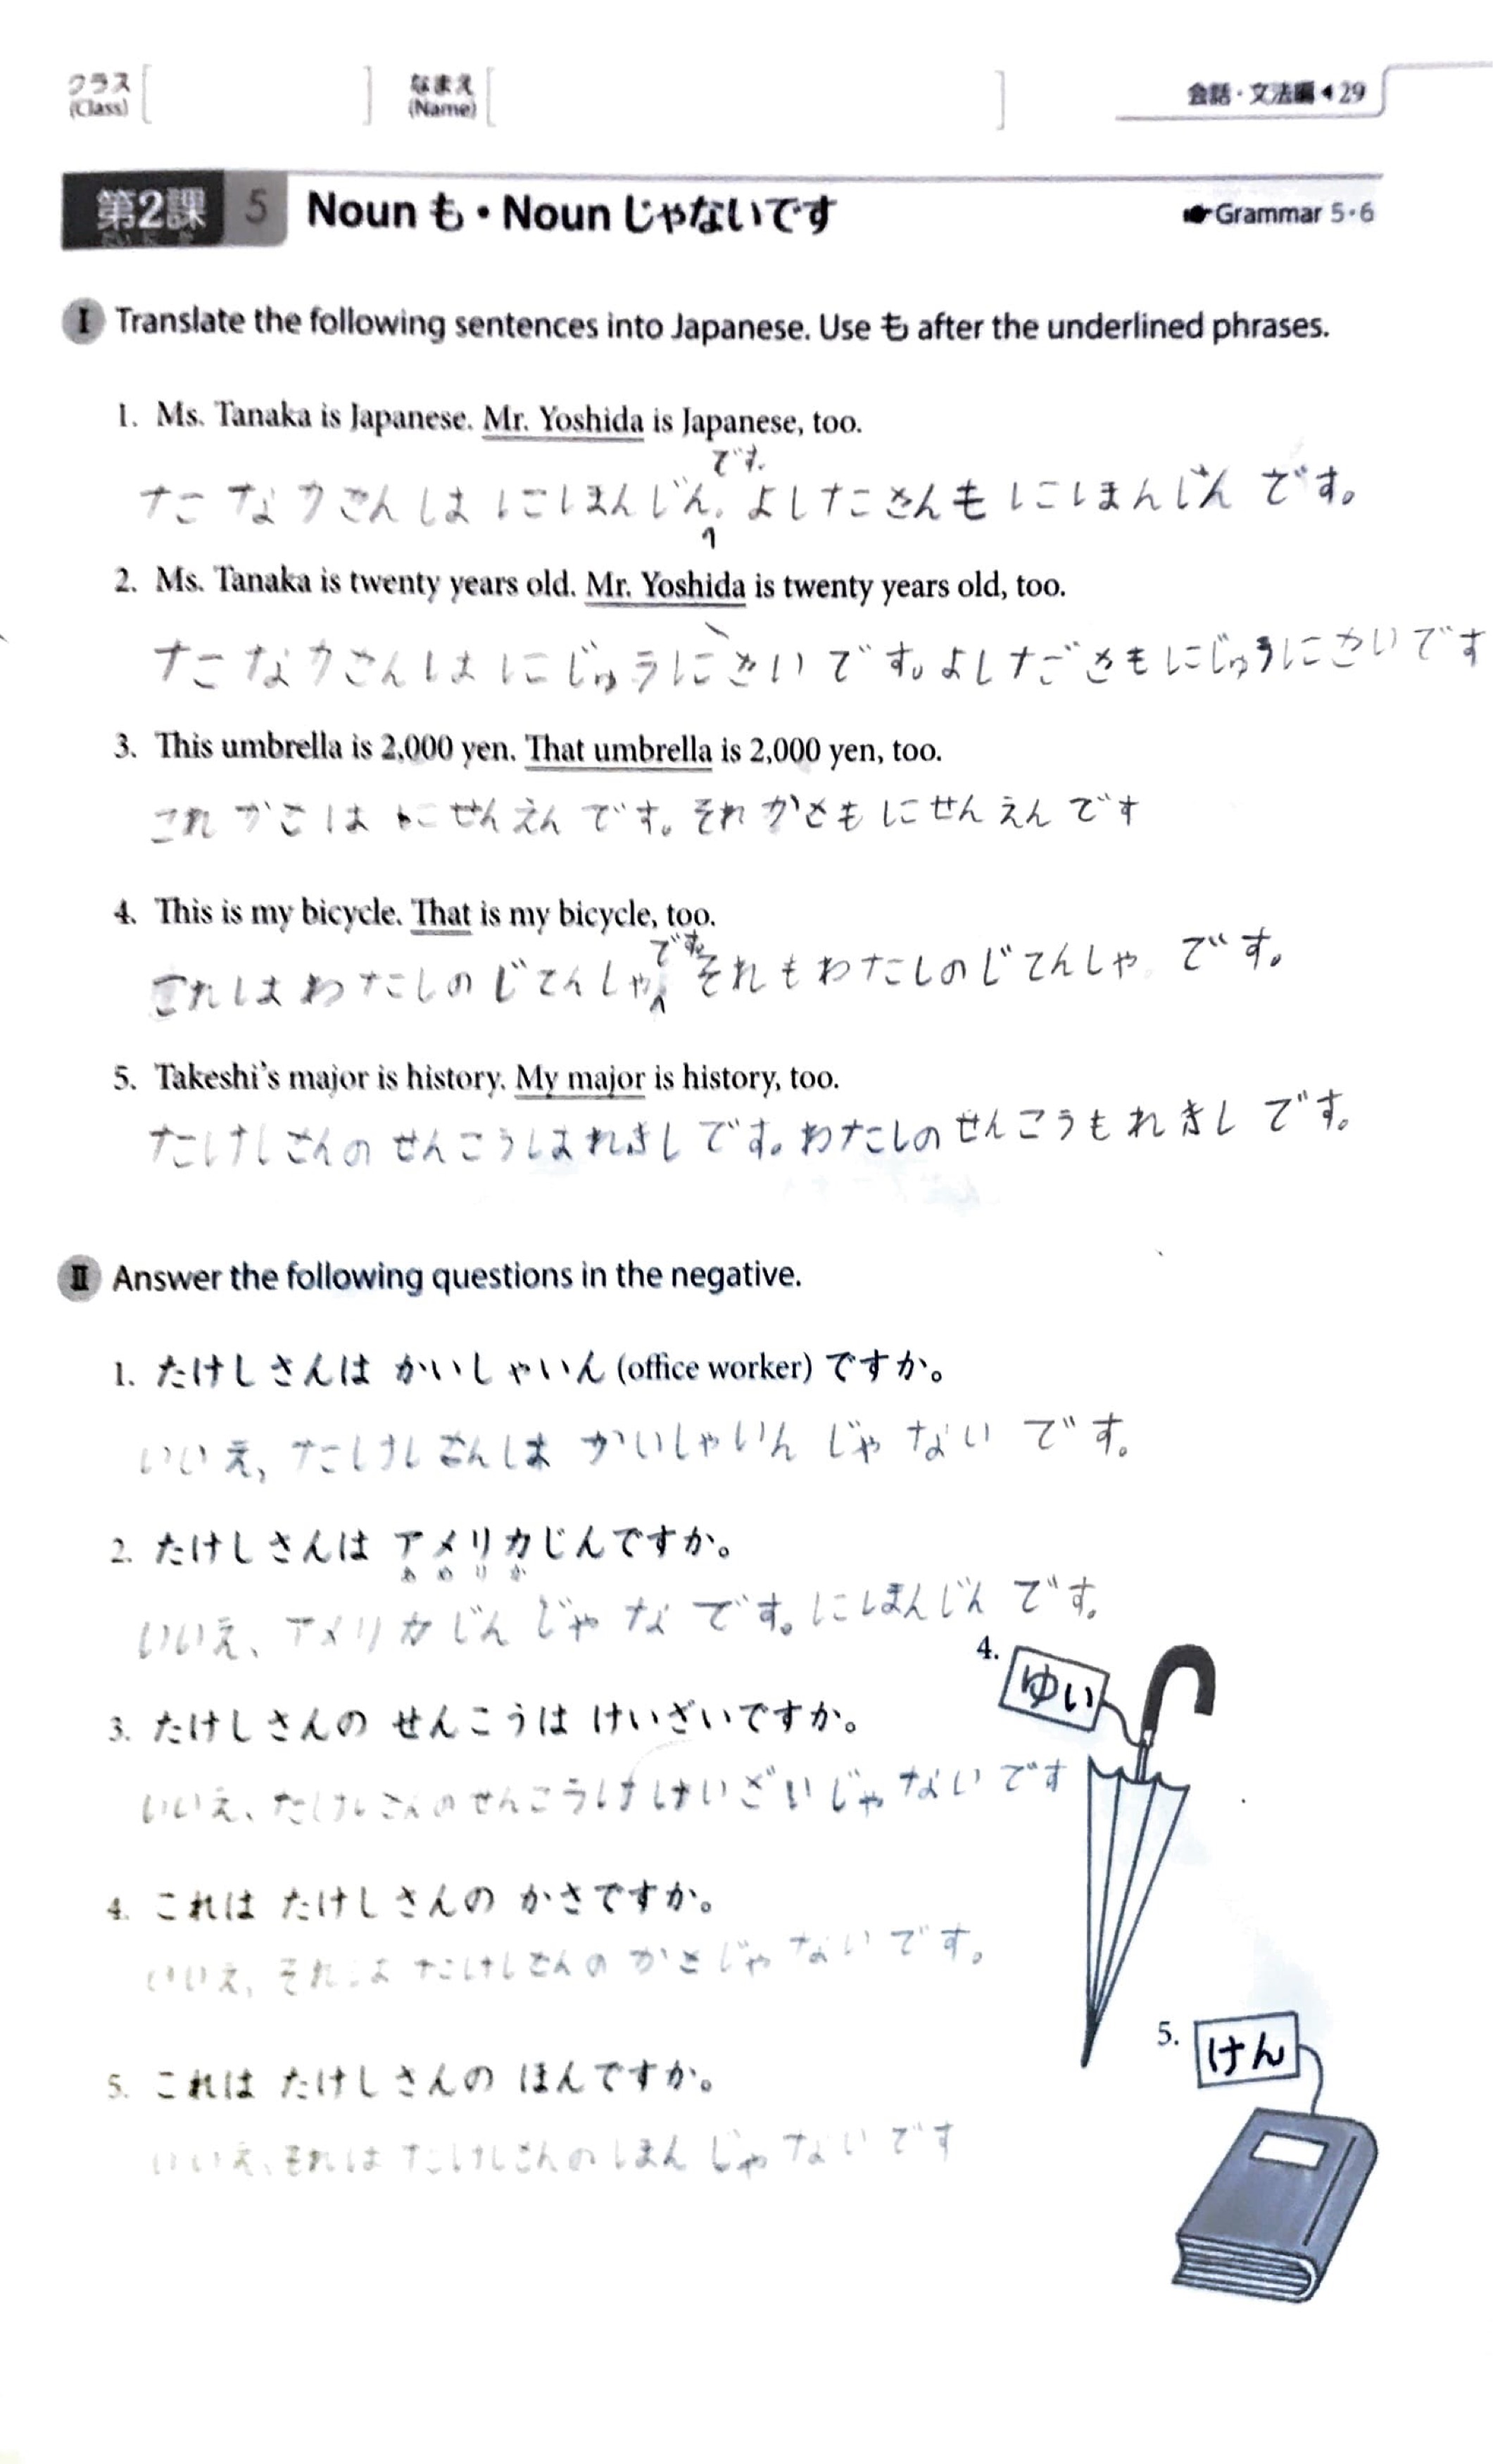 クラス
(Class)
なまえ
(Name)
会話・文法編◀29
第2課 5 Nounも・Nounじゃないです ☛Grammar 5・6
だい に か
Ⅰ Translate the following sentences into Japanese. Use も after the underlined phrases.
1. Ms. Tanaka is Japanese. Mr. Yoshida is Japanese, too.
です。
たなかさんは にほんじん。よしたさんも にほんじんです。
2. Ms. Tanaka is twenty years old. Mr. Yoshida is twenty years old, too.
たなかさんは にじゅうにさいです。よしださもにじゅうにさいです
3. This umbrella is 2,000 yen. That umbrella is 2,000 yen, too.
これ かさは にせんえんです。それ かさも にせんえんです
4. This is my bicycle. That is my bicycle, too.
です。
これはわたしのじてんしゃ それもわたしのじてんしゃ です。
5. Takeshi's major is history. My major is history, too.
たけしさんの せんこうはれきしです。わたしの せんこうも れきし です。
Ⅱ Answer the following questions in the negative.
1. たけしさんは かいしゃいん (office worker) ですか。
いいえ、たけしさんは かいしゃいん じゃ ない です。
2. たけしさんは アメリカじんですか。
あ め り か
いいえ、アメリカじん じゃ な です。にほんじん です。
4. ゆい
3. たけしさんの せんこうは けいざいですか。
いいえ、たけしさんのせんこうけけいざいじゃないです
4. これは たけしさんの かさですか。
いいえ、それは たけしさんの かさじゃ ないです。
5. けん
5. これは たけしさんの ほんですか。
いいえ、それは たけしさんのほん じゃ ないです